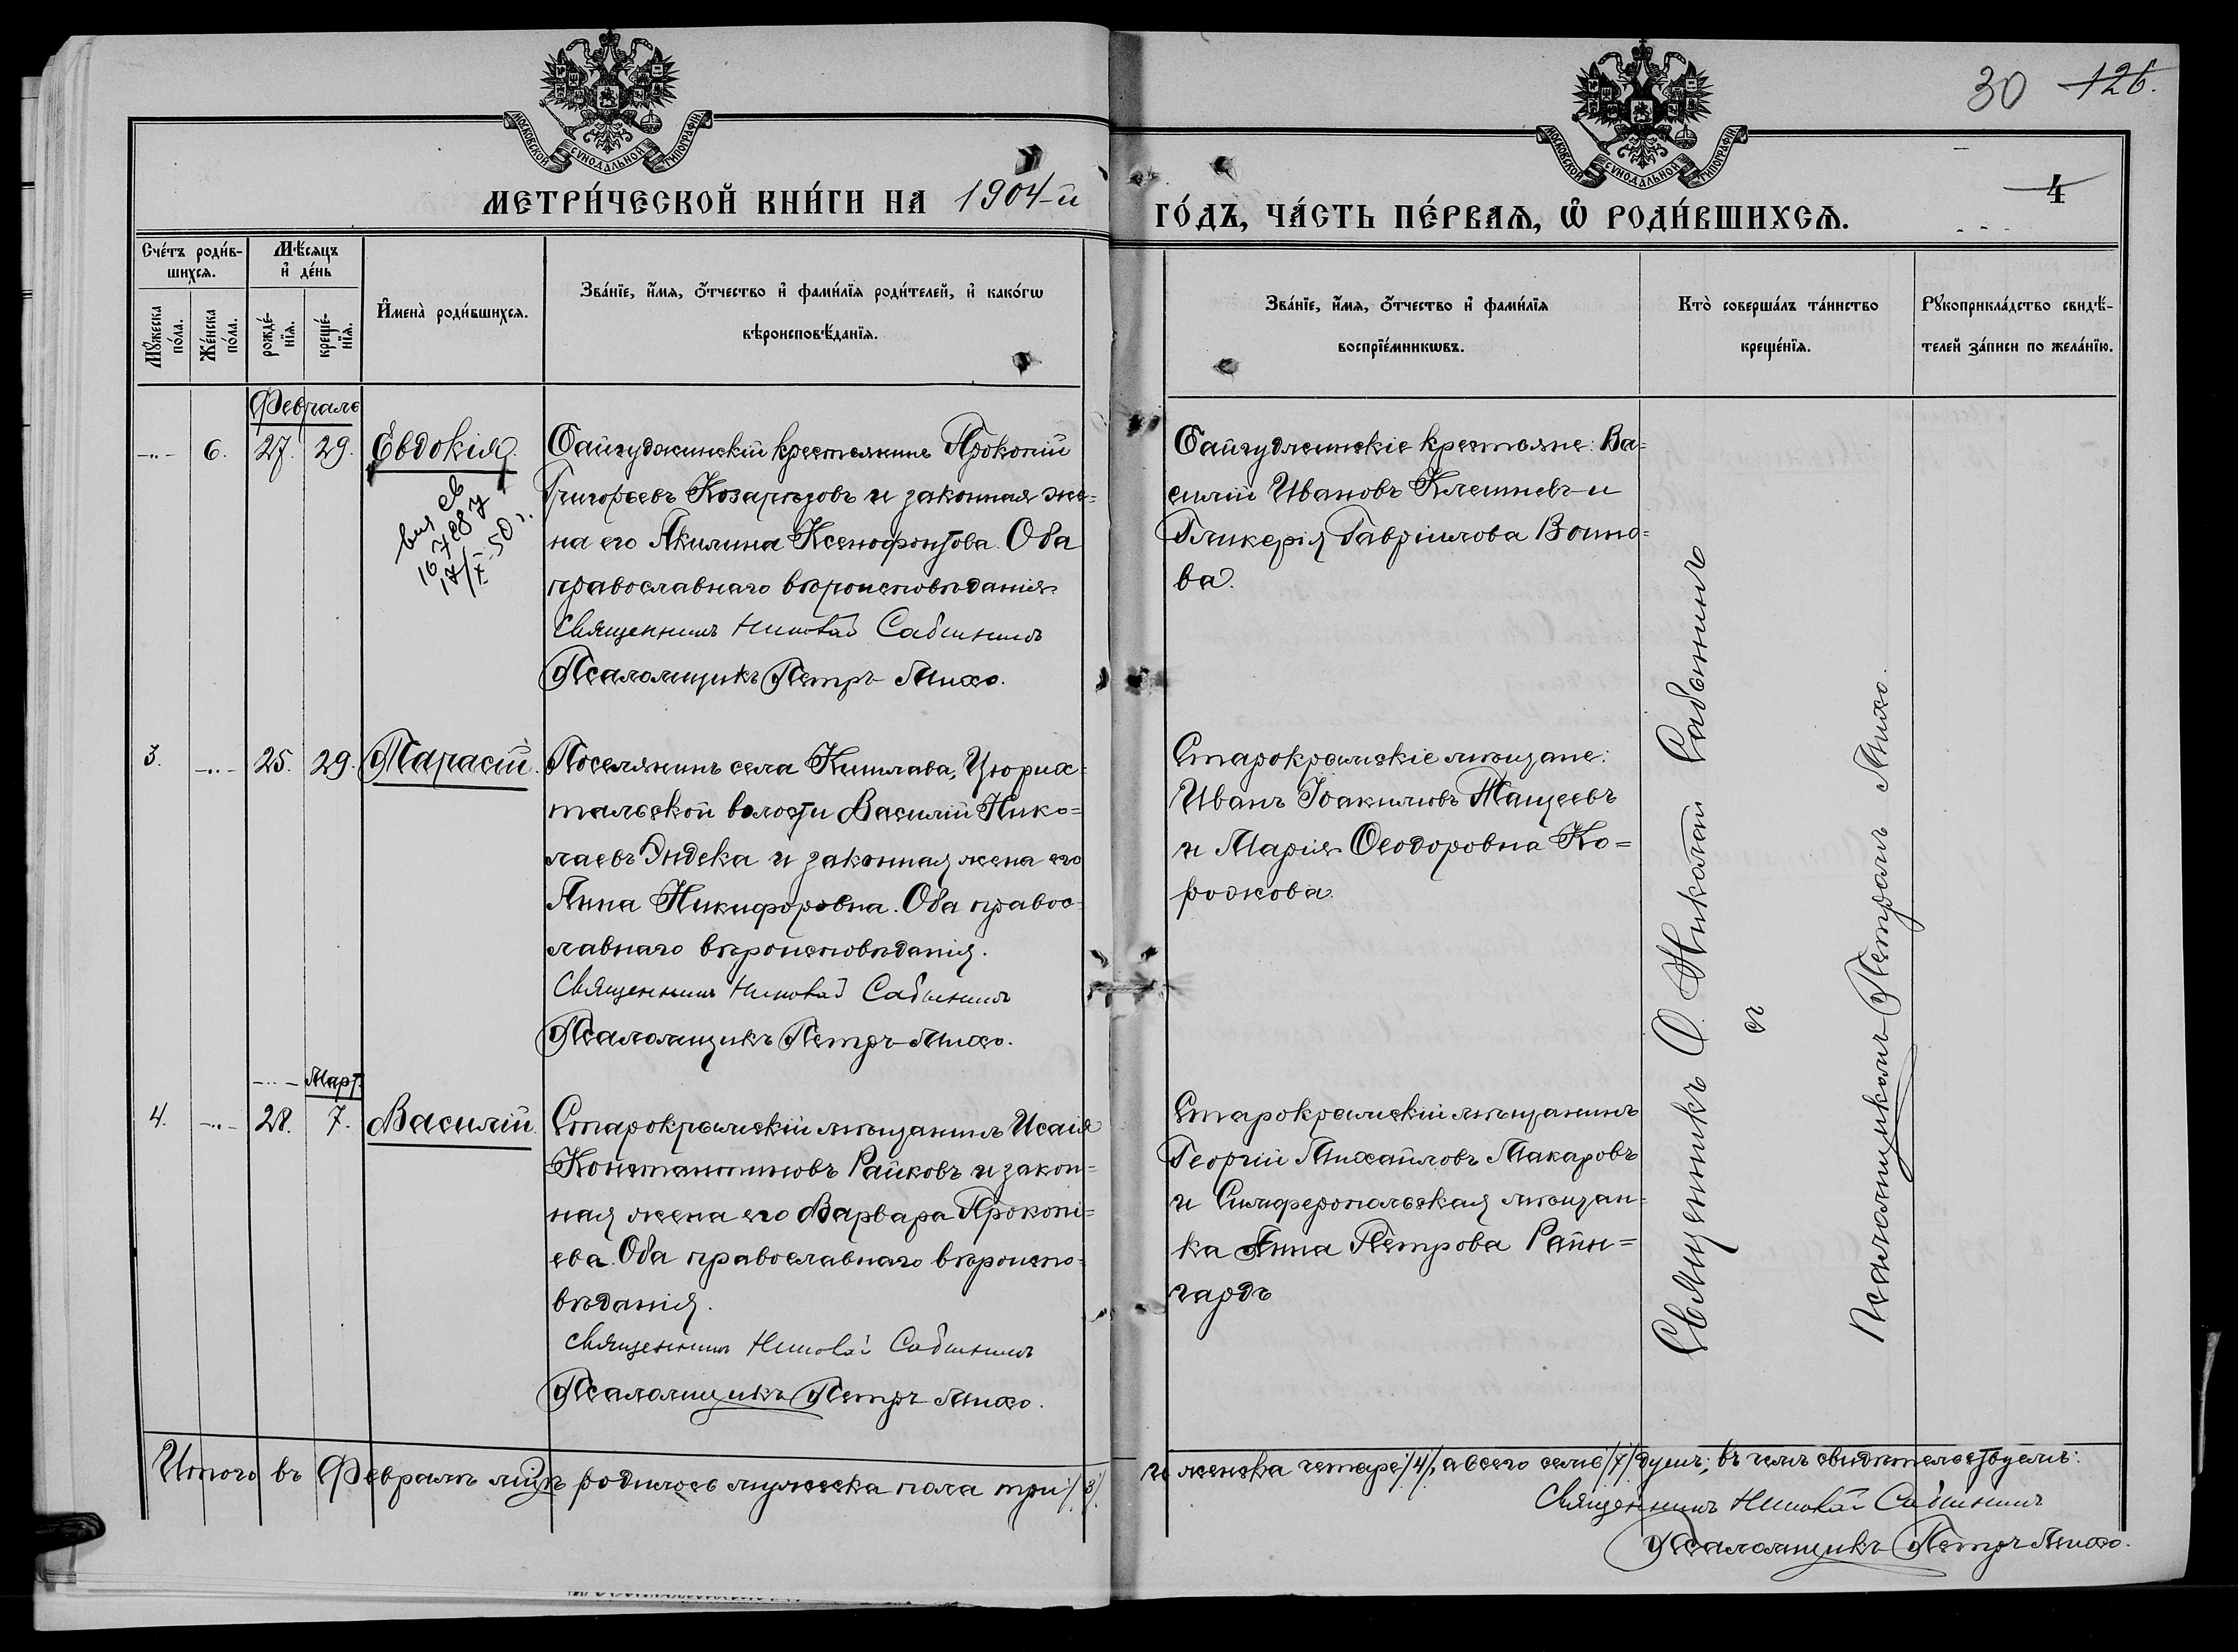 30 126.
МОСКОВСКОЙ СѴНОДАЛЬНОЙ ТИПОГРАФІИ
МОСКОВСКОЙ СѴНОДАЛЬНОЙ ТИПОГРАФІИ
4
МЕТРИ́ЧЕСКОЙ КНИ́ГИ НА 1904-й
ГО́ДЪ, ЧА́СТЬ ПЕ́РВАѦ, Ѡ҆ РОДИ́ВШИХСѦ.
Сче́тъ роди́в-
шихсѧ.
Мꙋ́жеска по́ла.
Же́нска по́ла.
Мѣ́сѧцъ
и҆ де́нь
рожде́-
нїѧ.
креще́-
нїѧ.
И҆мена̀ роди́вшихсѧ.
Зва́нїе, и҆́мѧ, ѻ҆́тчество и҆ фами́лїѧ роди́телей, и҆ како́гѡ
вѣроисповѣ́данїѧ.
Зва́нїе, и҆́мѧ, ѻ҆́тчество и҆ фами́лїѧ
воспрїе́мникѡвъ.
Кто̀ соверша́лъ та́инство
креще́нїѧ.
Рꙋкоприкла́дство свидѣ́-
телей за́писи по жела́нїю.
Февраль
-..- 6. 27. 29. Евдокія.
Байгуджинскій крестьянинъ Прокопій
Григорьевъ и законная же=
на его Акилина Ксенофонтова. Оба
православнаго вѣроисповѣданія.
Священникъ Николай Сабынинъ
Псаломщикъ Петръ Михо.
Байгуджинскіе крестьяне: Ва=
силій Ивановъ Клешневъ и
Гликерія Гавріилова Воино=
ва.
3. -..- 25. 29. Тарасій.
Поселянинъ села Кишлава, Цюрих=
тальской волости Василій Нико=
лаевъ Эндека и законная жена его
Анна Никифоровна. Оба правос=
лавнаго вѣроисповѣданія.
Священникъ Николай Сабынинъ
Псаломщикъ Петръ Михо.
Старокрымскіе мѣщане:
Иванъ Іоакимовъ Тащеевъ
и Марія Ѳеодоровна Ко=
рожова.
-..- Март.
4. -..- 28. 7. Василій.
Старокрымскій мѣщанинъ Исаія
Константиновъ Райковъ и закон=
ная жена его Варвара Прокопі=
ева. Оба православнаго вѣроиспо=
вѣданія.
Священникъ Николай Сабынинъ
Псаломщикъ Петръ Михо.
Старокрымскій мѣщанинъ
Георгій Михайловъ Макаровъ
и Симферопольская мѣщан=
ка Анна Петрова Райн=
гардъ
Священникъ О. Николай Сабынинъ
съ
Псаломщикомъ Петромъ Михо.
Итого въ Февралѣ мцѣ родилось мужеска пола три /3/.
и женска четыре /4/, а всего семь /7/ душъ; въ чемъ свидѣтельствуемъ:
Священникъ Николай Сабынинъ
Псаломщикъ Петръ Михо.